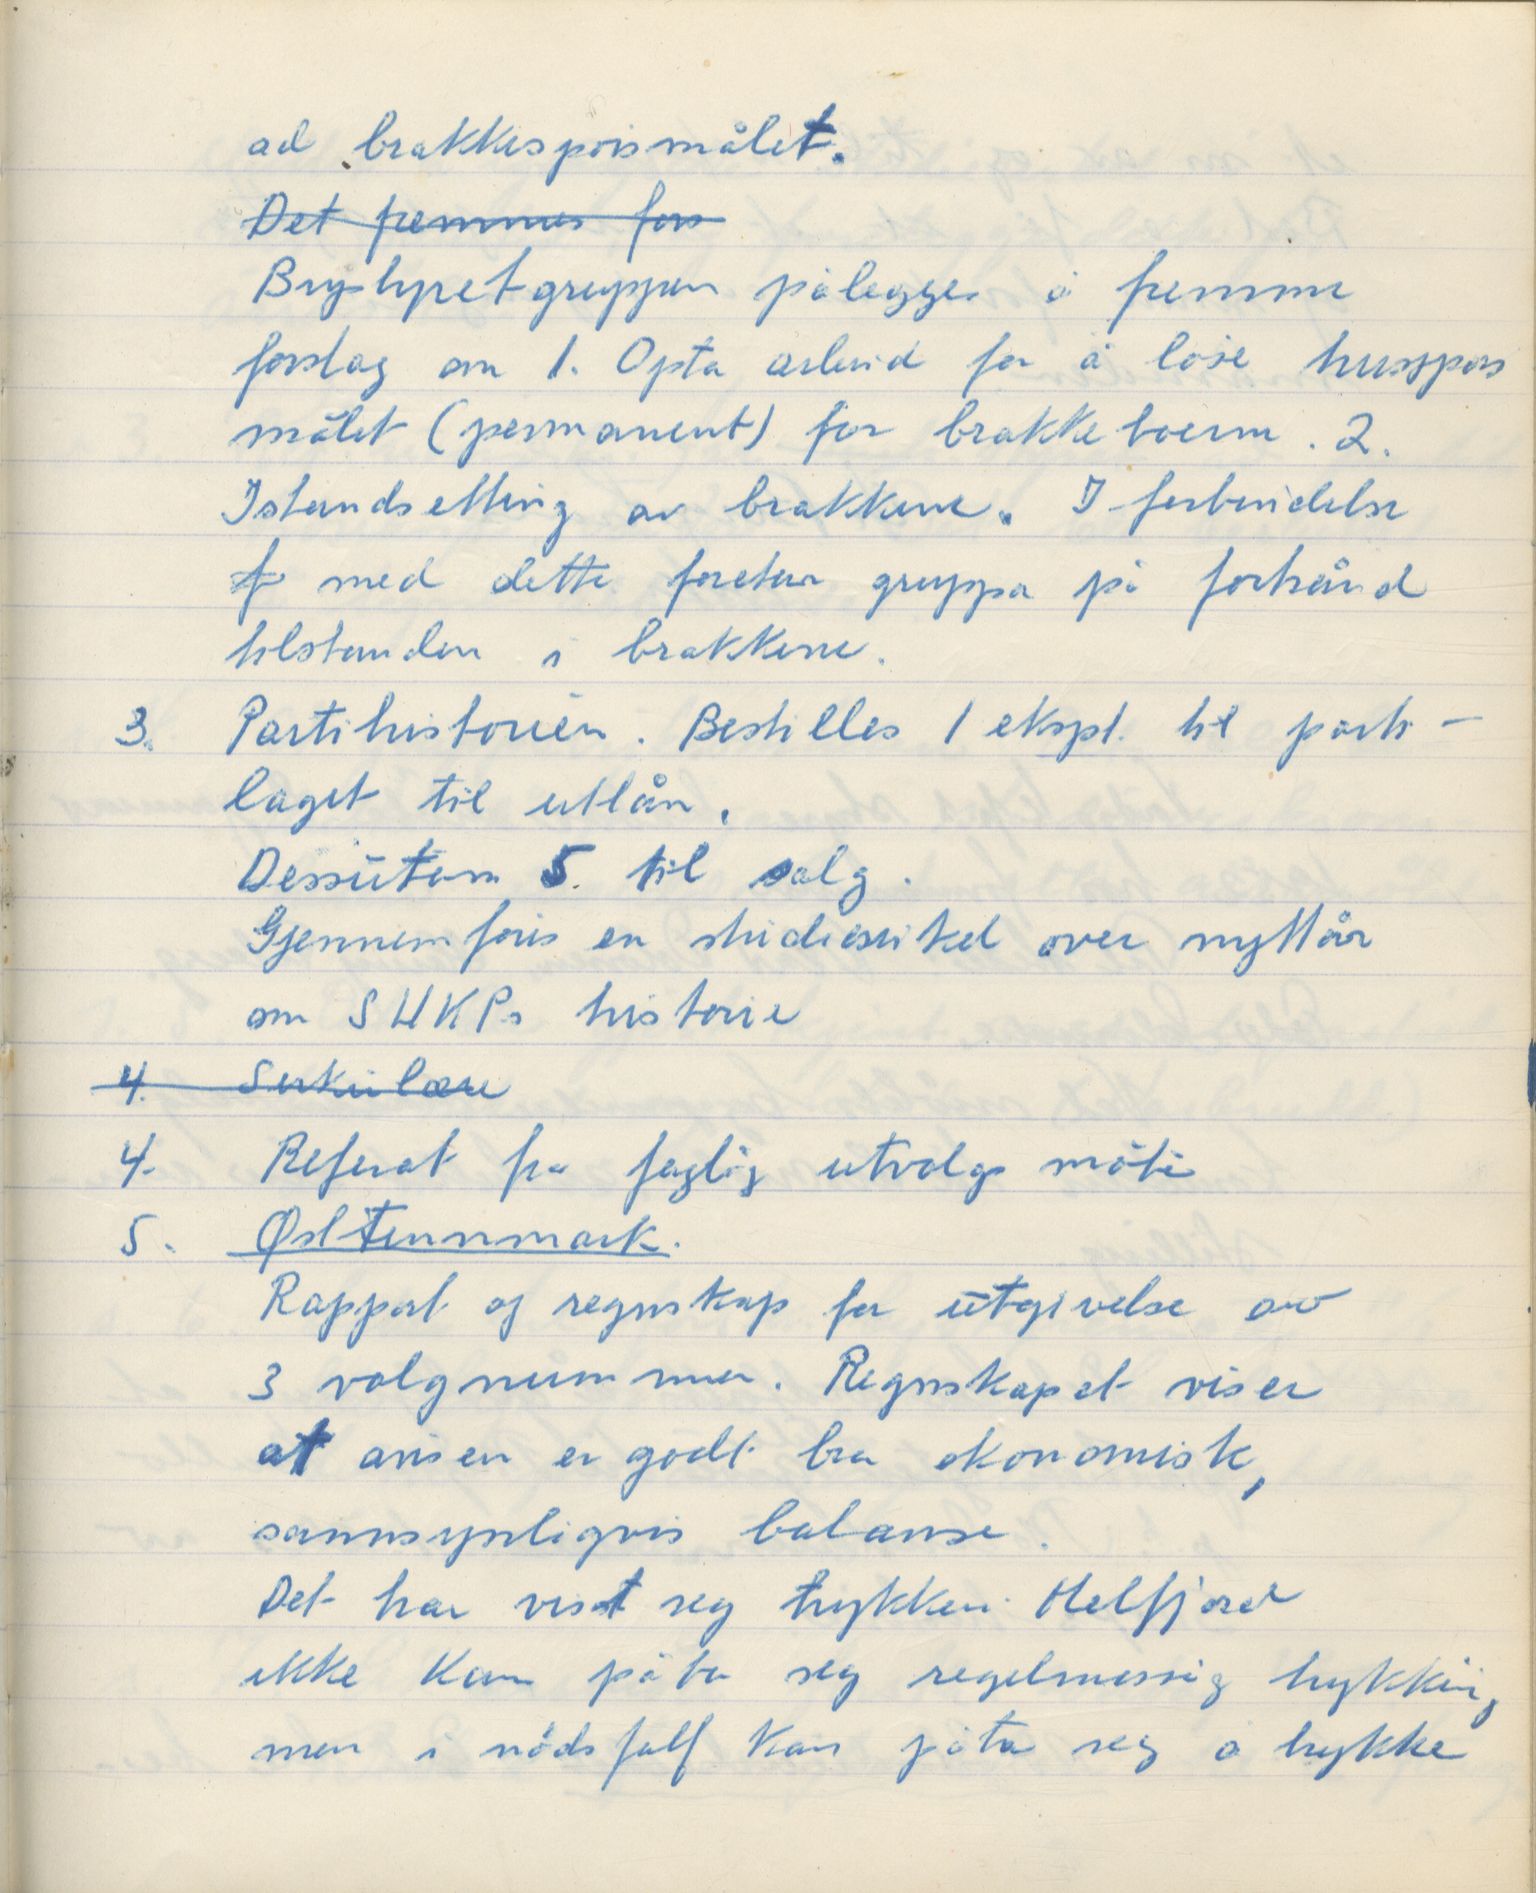 ad brakkespørsmålet.
Det fremmes fors
Bystyretgruppen pålegges å fremme
forslag om 1. Opta arbeid for å løse husspørs
målet (permanent) for brakkeboerne. 2.
Istandsetting av brakkene. I forbindelse
f med dette foretar gruppa på forhånd
tilstanden i brakkene.
3. Partihistorien. Bestilles 1 ekspl. til parti-
laget til utlån.
Dessutem 5. til salg.
Gjennemføris en studiesirkel over nyttår
om SUKPs historie
4. Sirkulære
4. Referat fra faglig utvalgs möte
5. Øst Finnmark.
Rapport og regnskap for utgivelse av
3 valgnummer. Regnskapet viser
at avisen er godt bra økonomisk,
sannsynligvis balanse.
Det har vist seg trykkeri Melfjord
ikke kan påta seg regelmessig trykking,
men i nödsfall kan påta seg å trykke